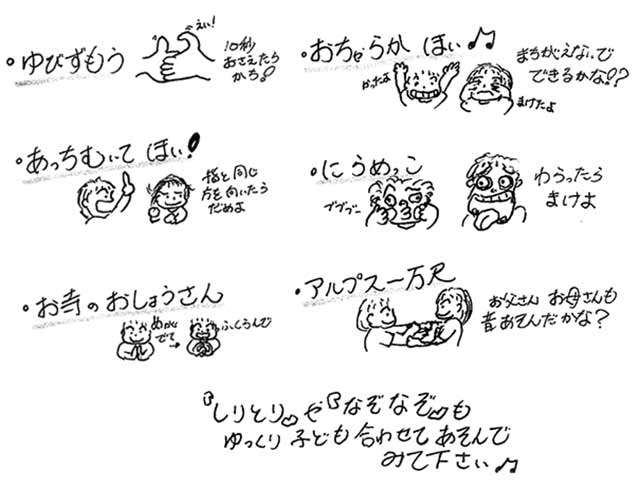 ・ゆびずもう
えい!
10秒
おさえたら
かち!
・おちゃらか ほい♫
まちがえないで
できるかな!?
かったよ
まけたよ
・あっちむいて ほい!
指と同じ
方を向いたら
だめよ
・にらめっこ
ブブブー
わらったら
まけよ
・お寺のおしょうさん
めが
でて
→
ふくらんで
・アルプス一万尺
お父さん お母さんも
昔あそんだかな?
『しりとり』や『なぞなぞ』も
ゆっくり 子ども 合わせて あそんで
みて下さい♫